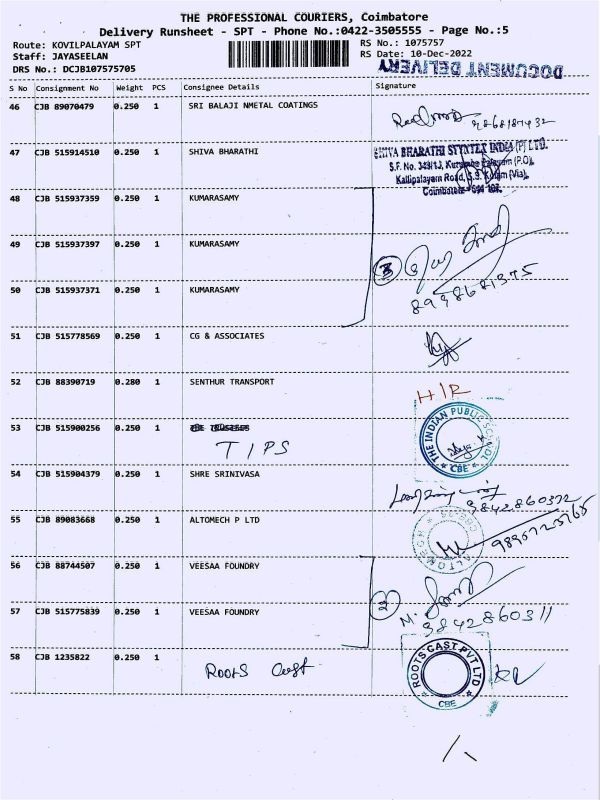 THE PROFESSIONAL COURIERS, Coimbatore
Delivery Runsheet - SPT - Phone No.:0422-3505555 - Page No.:5
Route: KOVILPALAYAM SPT
RS No.: 1075757
Staff: JAYASEELAN
RS Date: 10-Dec-2022
DRS No.: DCJB107575705
DOCUMENT DELIVERY
S No Consignment No Weight PCS Consignee Details Signature
46 CJB 89070479 0.250 1 SRI BALAJI NMETAL COATINGS
9868187432
47 CJB 515914510 0.250 1 SHIVA BHARATHI
SHIVA BHARATHI SYNTEX INDIA (P) LTD.
S.F. No. 343/1J, Kurumba Palayam (P.O),
Kallipalayam Road, S.S. Kulam (Via),
Coimbatore - 641 107.
48 CJB 515937359 0.250 1 KUMARASAMY
49 CJB 515937397 0.250 1 KUMARASAMY
3
50 CJB 515937371 0.250 1 KUMARASAMY
8998681375
51 CJB 515778569 0.250 1 CG & ASSOCIATES
52 CJB 88390719 0.280 1 SENTHUR TRANSPORT
H/R
53 CJB 515900256 0.250 1
TIPS
THE INDIAN PUBLIC SCHOOL
CBE
54 CJB 515904379 0.250 1 SHRE SRINIVASA
9842860372
55 CJB 89083668 0.250 1 ALTOMECH P LTD
ALTOMECH
56 CJB 88744507 0.250 1 VEESAA FOUNDRY
2
57 CJB 515775839 0.250 1 VEESAA FOUNDRY
9842860311
58 CJB 1235822 0.250 1 Roots Cast
ROOTS CAST PVT LTD
CBE